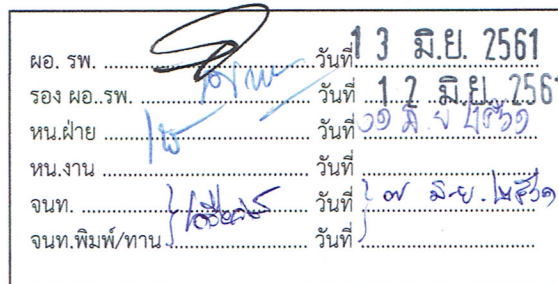 ผอ. รพ. .................... วันที่ 13 มิ.ย. 2561
รอง ผอ..รพ. .................... วันที่ 12 มิ.ย. 2561
หน.ฝ่าย .................... วันที่ มิ.ย ๒๕๖๑
หน.งาน .................... วันที่ ....................
จนท. .................... วันที่ ๗ มิ.ย. ๒๕๖๑
จนท.พิมพ์/ทาน .................... วันที่ ....................